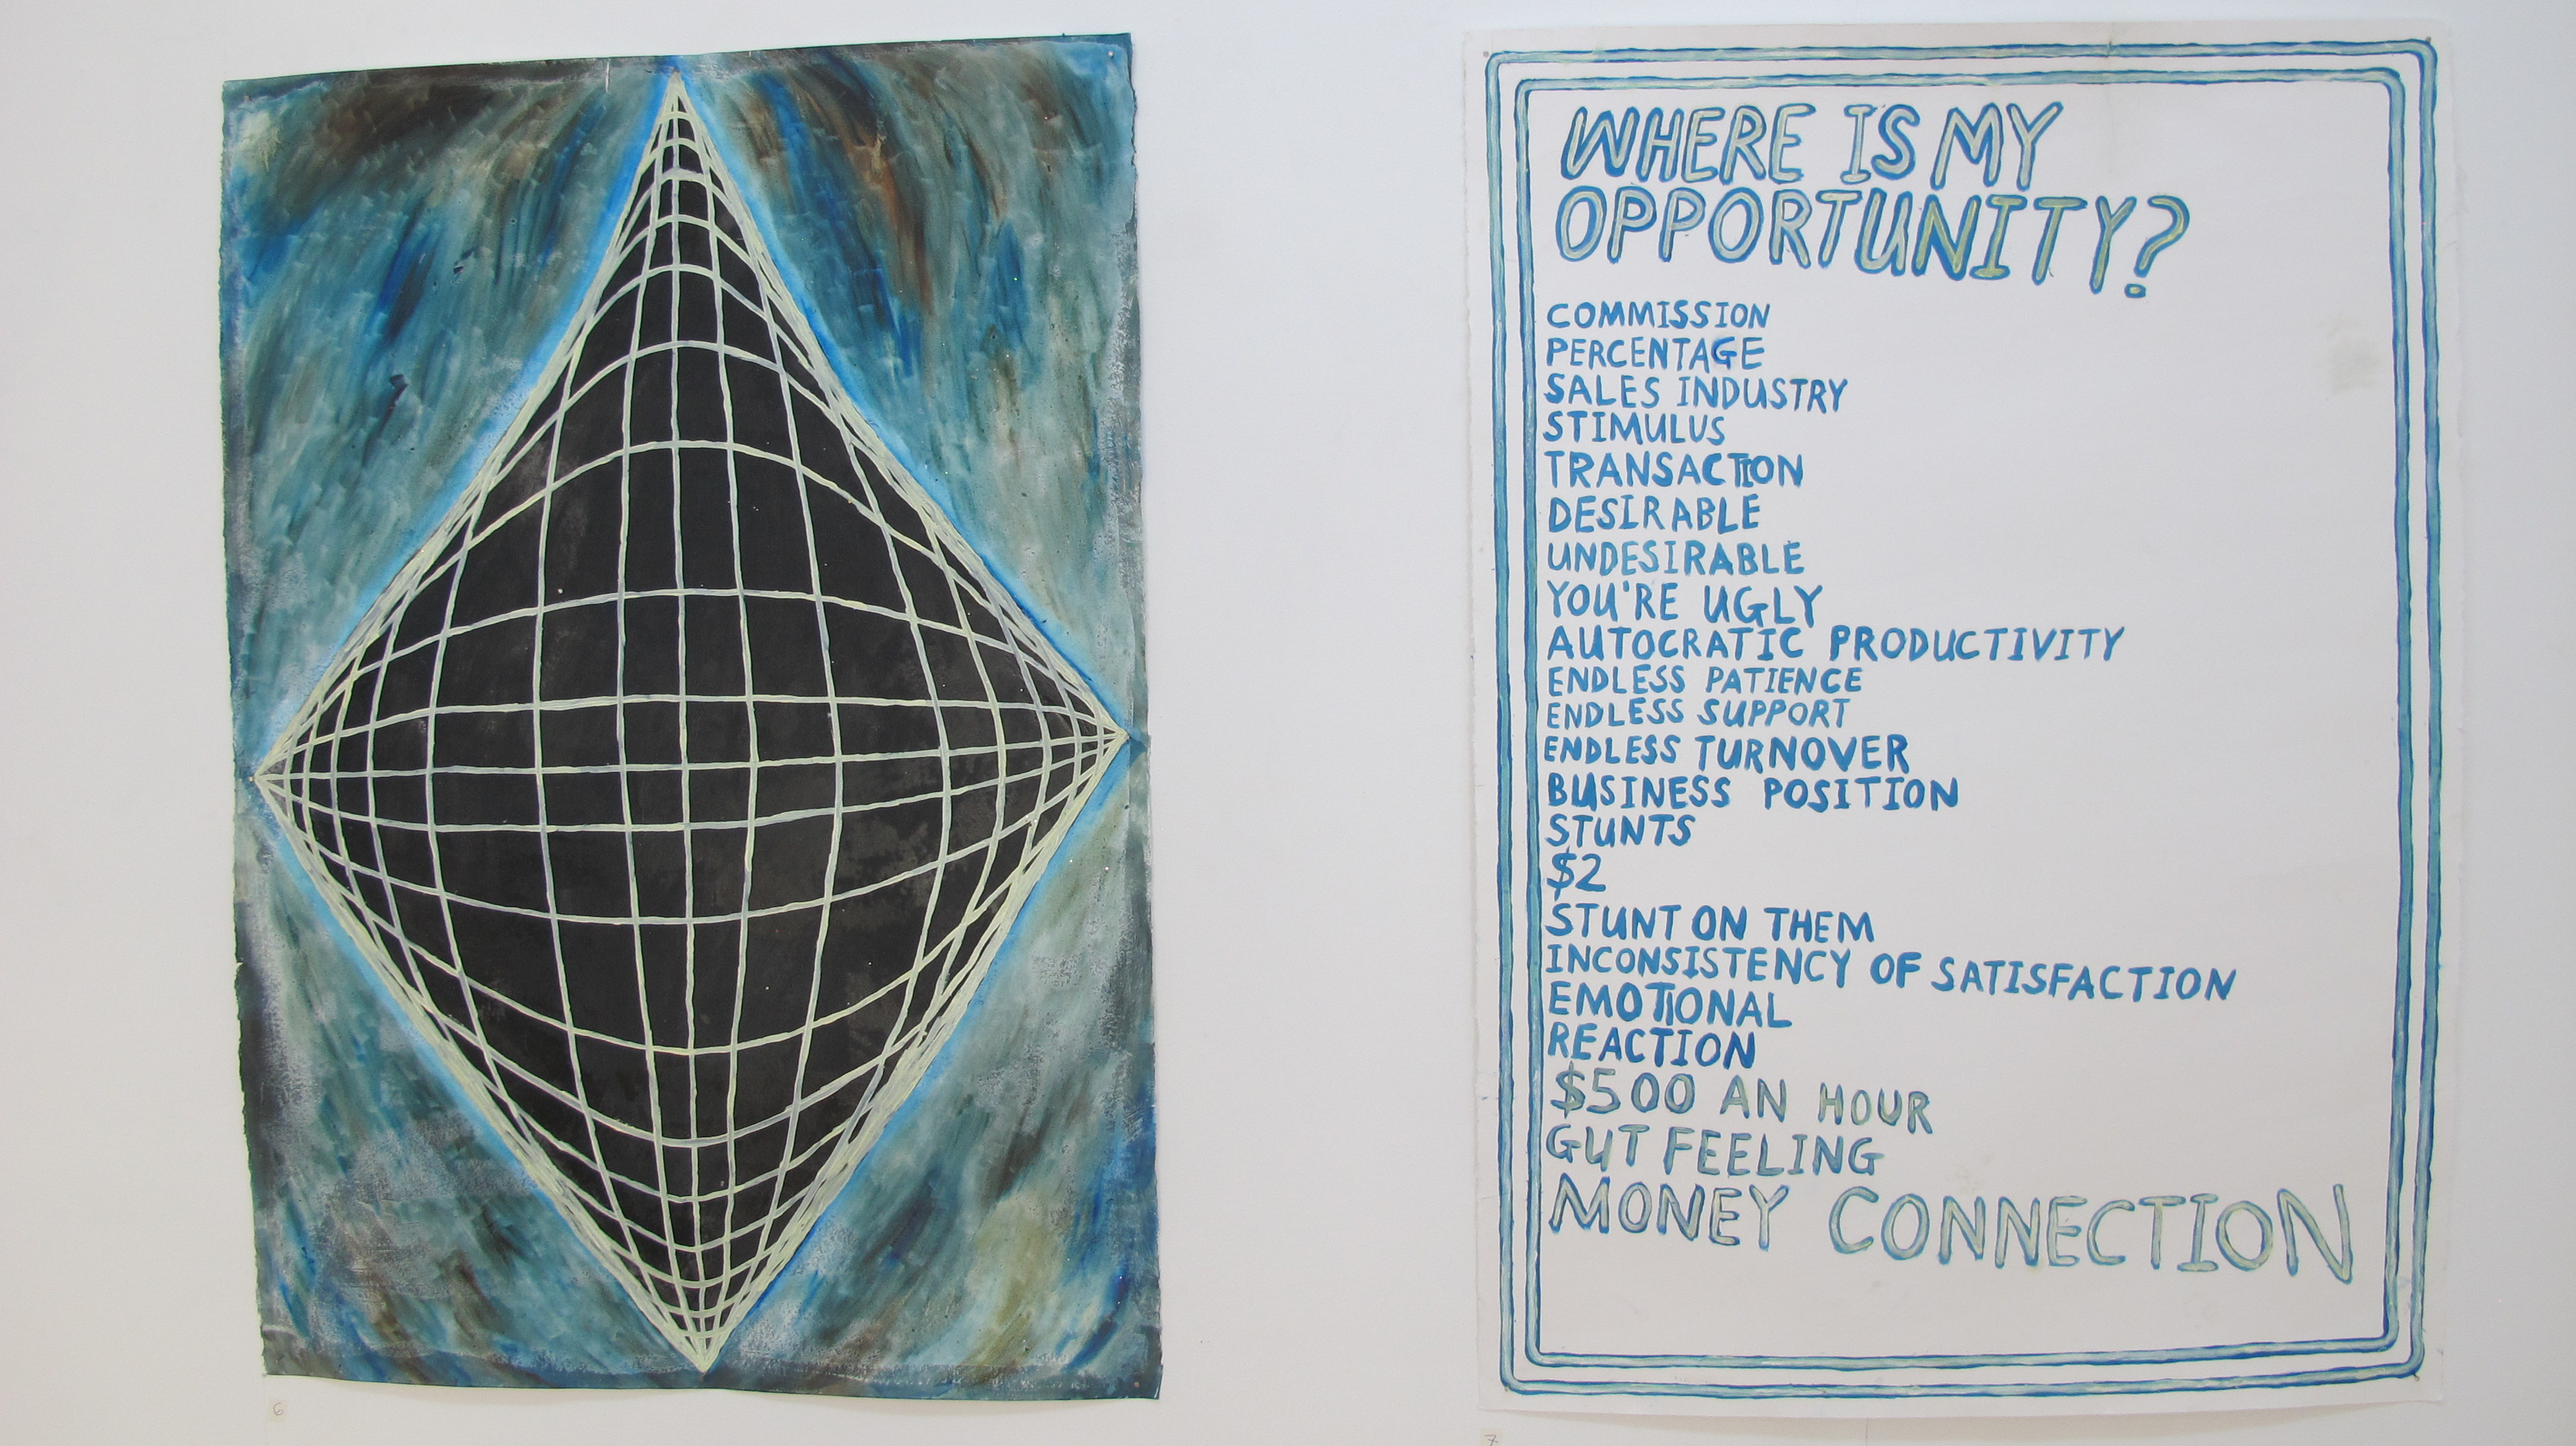 WHERE IS MY
OPPORTUNITY?
COMMISSION
PERCENTAGE
SALES INDUSTRY
STIMULUS
TRANSACTION
DESIRABLE
UNDESIRABLE
YOU'RE UGLY
AUTOCRATIC PRODUCTIVITY
ENDLESS PATIENCE
ENDLESS SUPPORT
ENDLESS TURNOVER
BUSINESS POSITION
STUNTS
$2
STUNT ON THEM
INCONSISTENCY OF SATISFACTION
EMOTIONAL
REACTION
$500 AN HOUR
GUT FEELING
MONEY CONNECTION
6
7